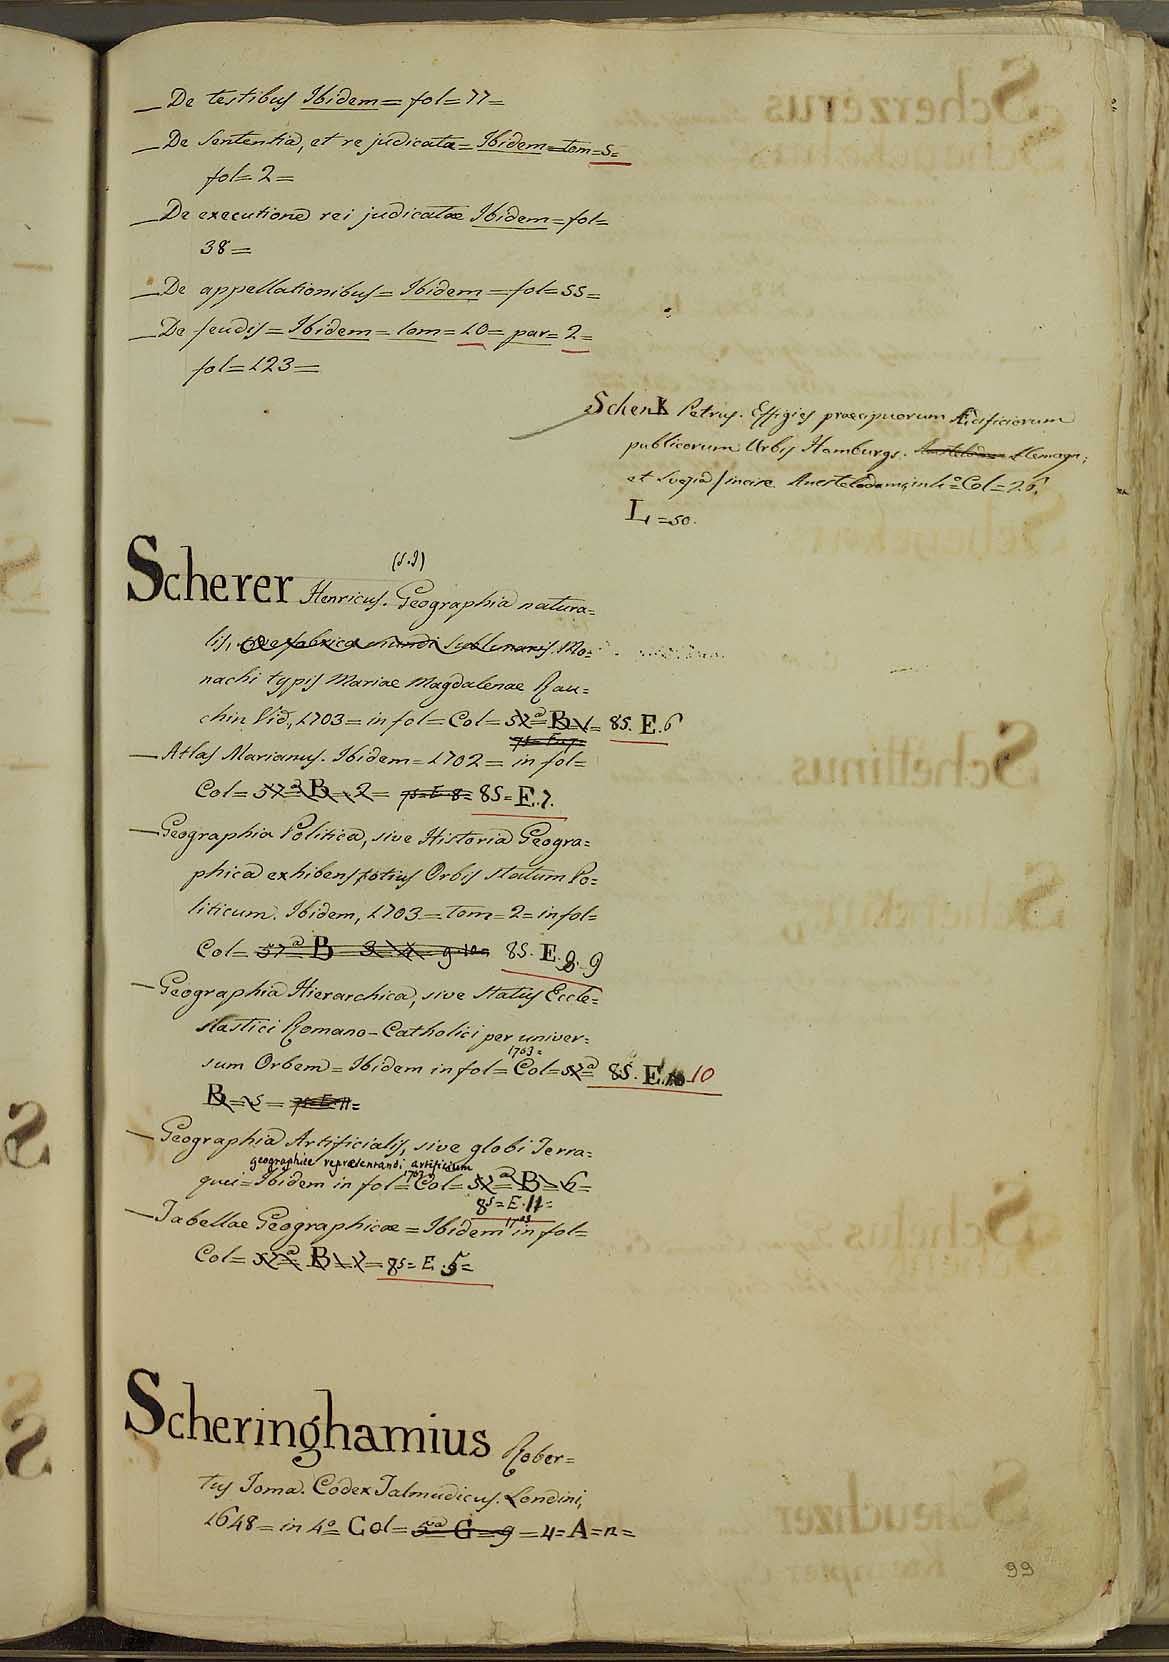 — De testibus Ibidem = fol = 77 =
— De sententia, et re judicata = Ibidem = tom = 5 =
fol = 2 =
— De executione rei judicatae Ibidem = fol =
38 =
— De appellationibus = Ibidem = fol = 55 =
— De feudis = Ibidem = tom = 10 = par = 2 =
fol = 123 =
Schenk Petrus. Effigies praecipuorum Aedificiorum
publicorum Urbis Hamburgs.
et Svezia / incise. Amstelodami, in 4.º Col = 26.
L = 50.
(S.J)
Scherer Henricus. Geographia natura=
lis, sive fabrica mundi sublunaris. Mo=
nachi typis Mariae Magdalenae Rau=
chin Vid., 1703 = in fol = Col = 57ª = B = 1 = 85. E. 6
— Atlas Marianus. Ibidem = 1702 = in fol =
Col = 57ª B = 2 = 75 = E 8 = 85 = E. 7.
— Geographia Politica, sive Historia Geogra=
phica exhibens totius Orbis statum Po=
liticum. Ibidem, 1703 = tom = 2 = in fol =
Col = 57ª B = 3 = 4 = 9 = 10 = 85. E. 8. 9
— Geographia Hierarchica, sive Status Eccle=
siastici Romano-Catholici per univer=
sum Orbem = Ibidem in fol = 1703 = Col = 57ª 85. E. 10
B = 5 = 75 = E = 11 =
— Geographia Artificialis, sive globi Terra=
geographice repraesentandi artificium
quei = Ibidem in fol = 1703 = Col = 57 = ª B = 6 =
85 = E. 11 =
— Tabellae Geographicae = Ibidem 1703 in fol =
Col = 57ª = B = 7 = 85 = E. 5 =
Scheringhamius Rober=
tus Joma. Codex Talmudicus. Londini,
1648 = in 4º = Col = 5ª = G = 9 = 4 = A = n =
99